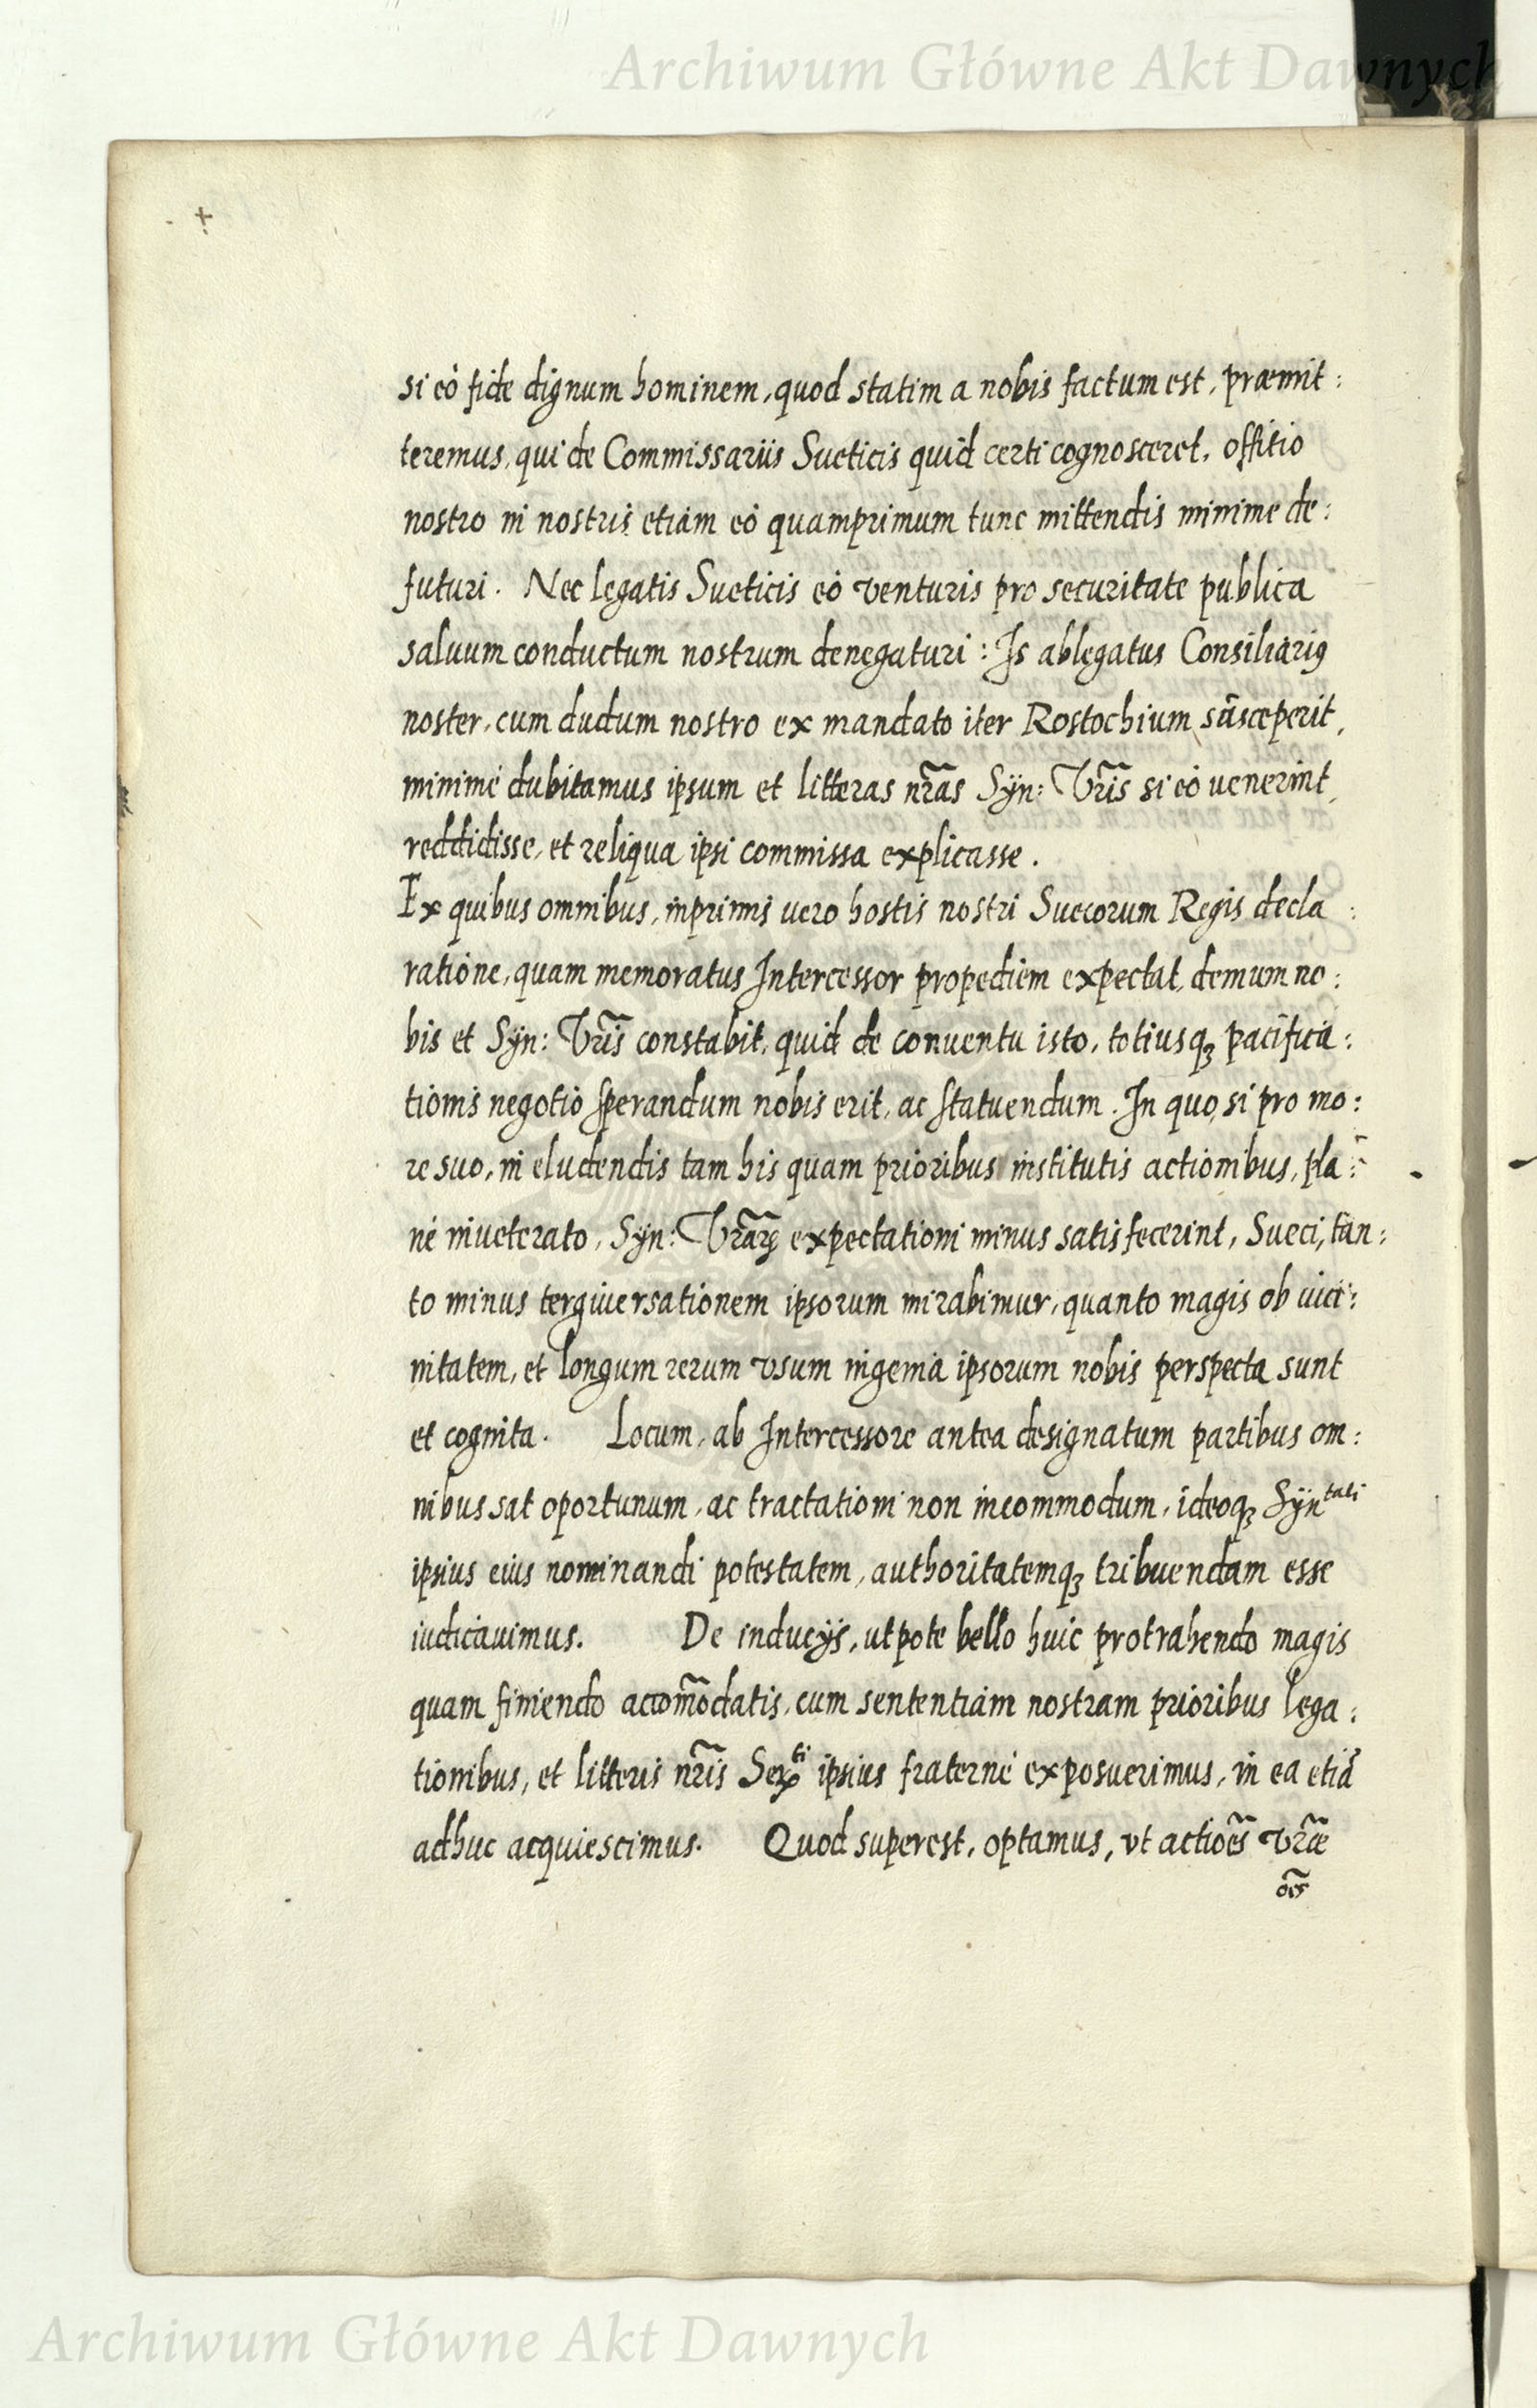 Archiwum Główne Akt Dawnych
si eò fide dignum hominem, quod statim a nobis factum est, præmit:
teremus, qui de Commissariis Sueticis quid certi cognosceret, offitio
nostro in nostris etiam eò quamprimum tunc mittendis minime de:
futuri. Nec legatis Sueticis eò venturis pro securitate publica
saluum conductum nostrum denegaturi: Is ablegatus Consiliariꝰ
noster, cum dudum nostro ex mandato iter Rostochium susceperit,
minimè dubitamus ipsum et litteras nr̃as Sÿn: Vr̃is si eò uenerint,
reddidisse, et reliqua ipsi commissa explicasse.
Ex quibus omnibus, inprimis uero hostis nostri Suecorum Regis decla:
ratione, quam memoratus Intercessor propediem expectat, demum no:
bis et Sÿn: Vr̃is constabit, quid de conuentu isto, totiusqꝫ pacifica:
tionis negotio sperandum nobis erit, ac statuendum. In quo, si pro mo:
re suo, in eludendis tam his quam prioribus institutis actionibus, pla:
nè inueterato, Sÿn: Vr̃aꝝ expectationi minus satisfecerint, Sueci, tan:
to minus tergiuersationem ipsorum mirabimur, quanto magis ob uici:
nitatem, et longum rerum vsum ingenia ipsorum nobis perspecta sunt
et cognita. Locum, ab Intercessore antea designatum partibus om:
nibus sat oportunum, ac tractationi non incommodum, ideoqꝫ Sÿn^tati
ipsius eius nominandi potestatem, authoritatemqꝫ tribuendam esse
iudicauimus. De inducÿs, utpote bello huic protrahendo magis
quam finiendo accom̃odatis, cum sententiam nostram prioribus lega:
tionibus, et litteris nr̃is Ser^ti ipsius fraternè exposuerimus, in ea etiã
adhuc acquiescimus. Quod superest, optamus, vt actiões vr̃æ
oẽs
Archiwum Główne Akt Dawnych